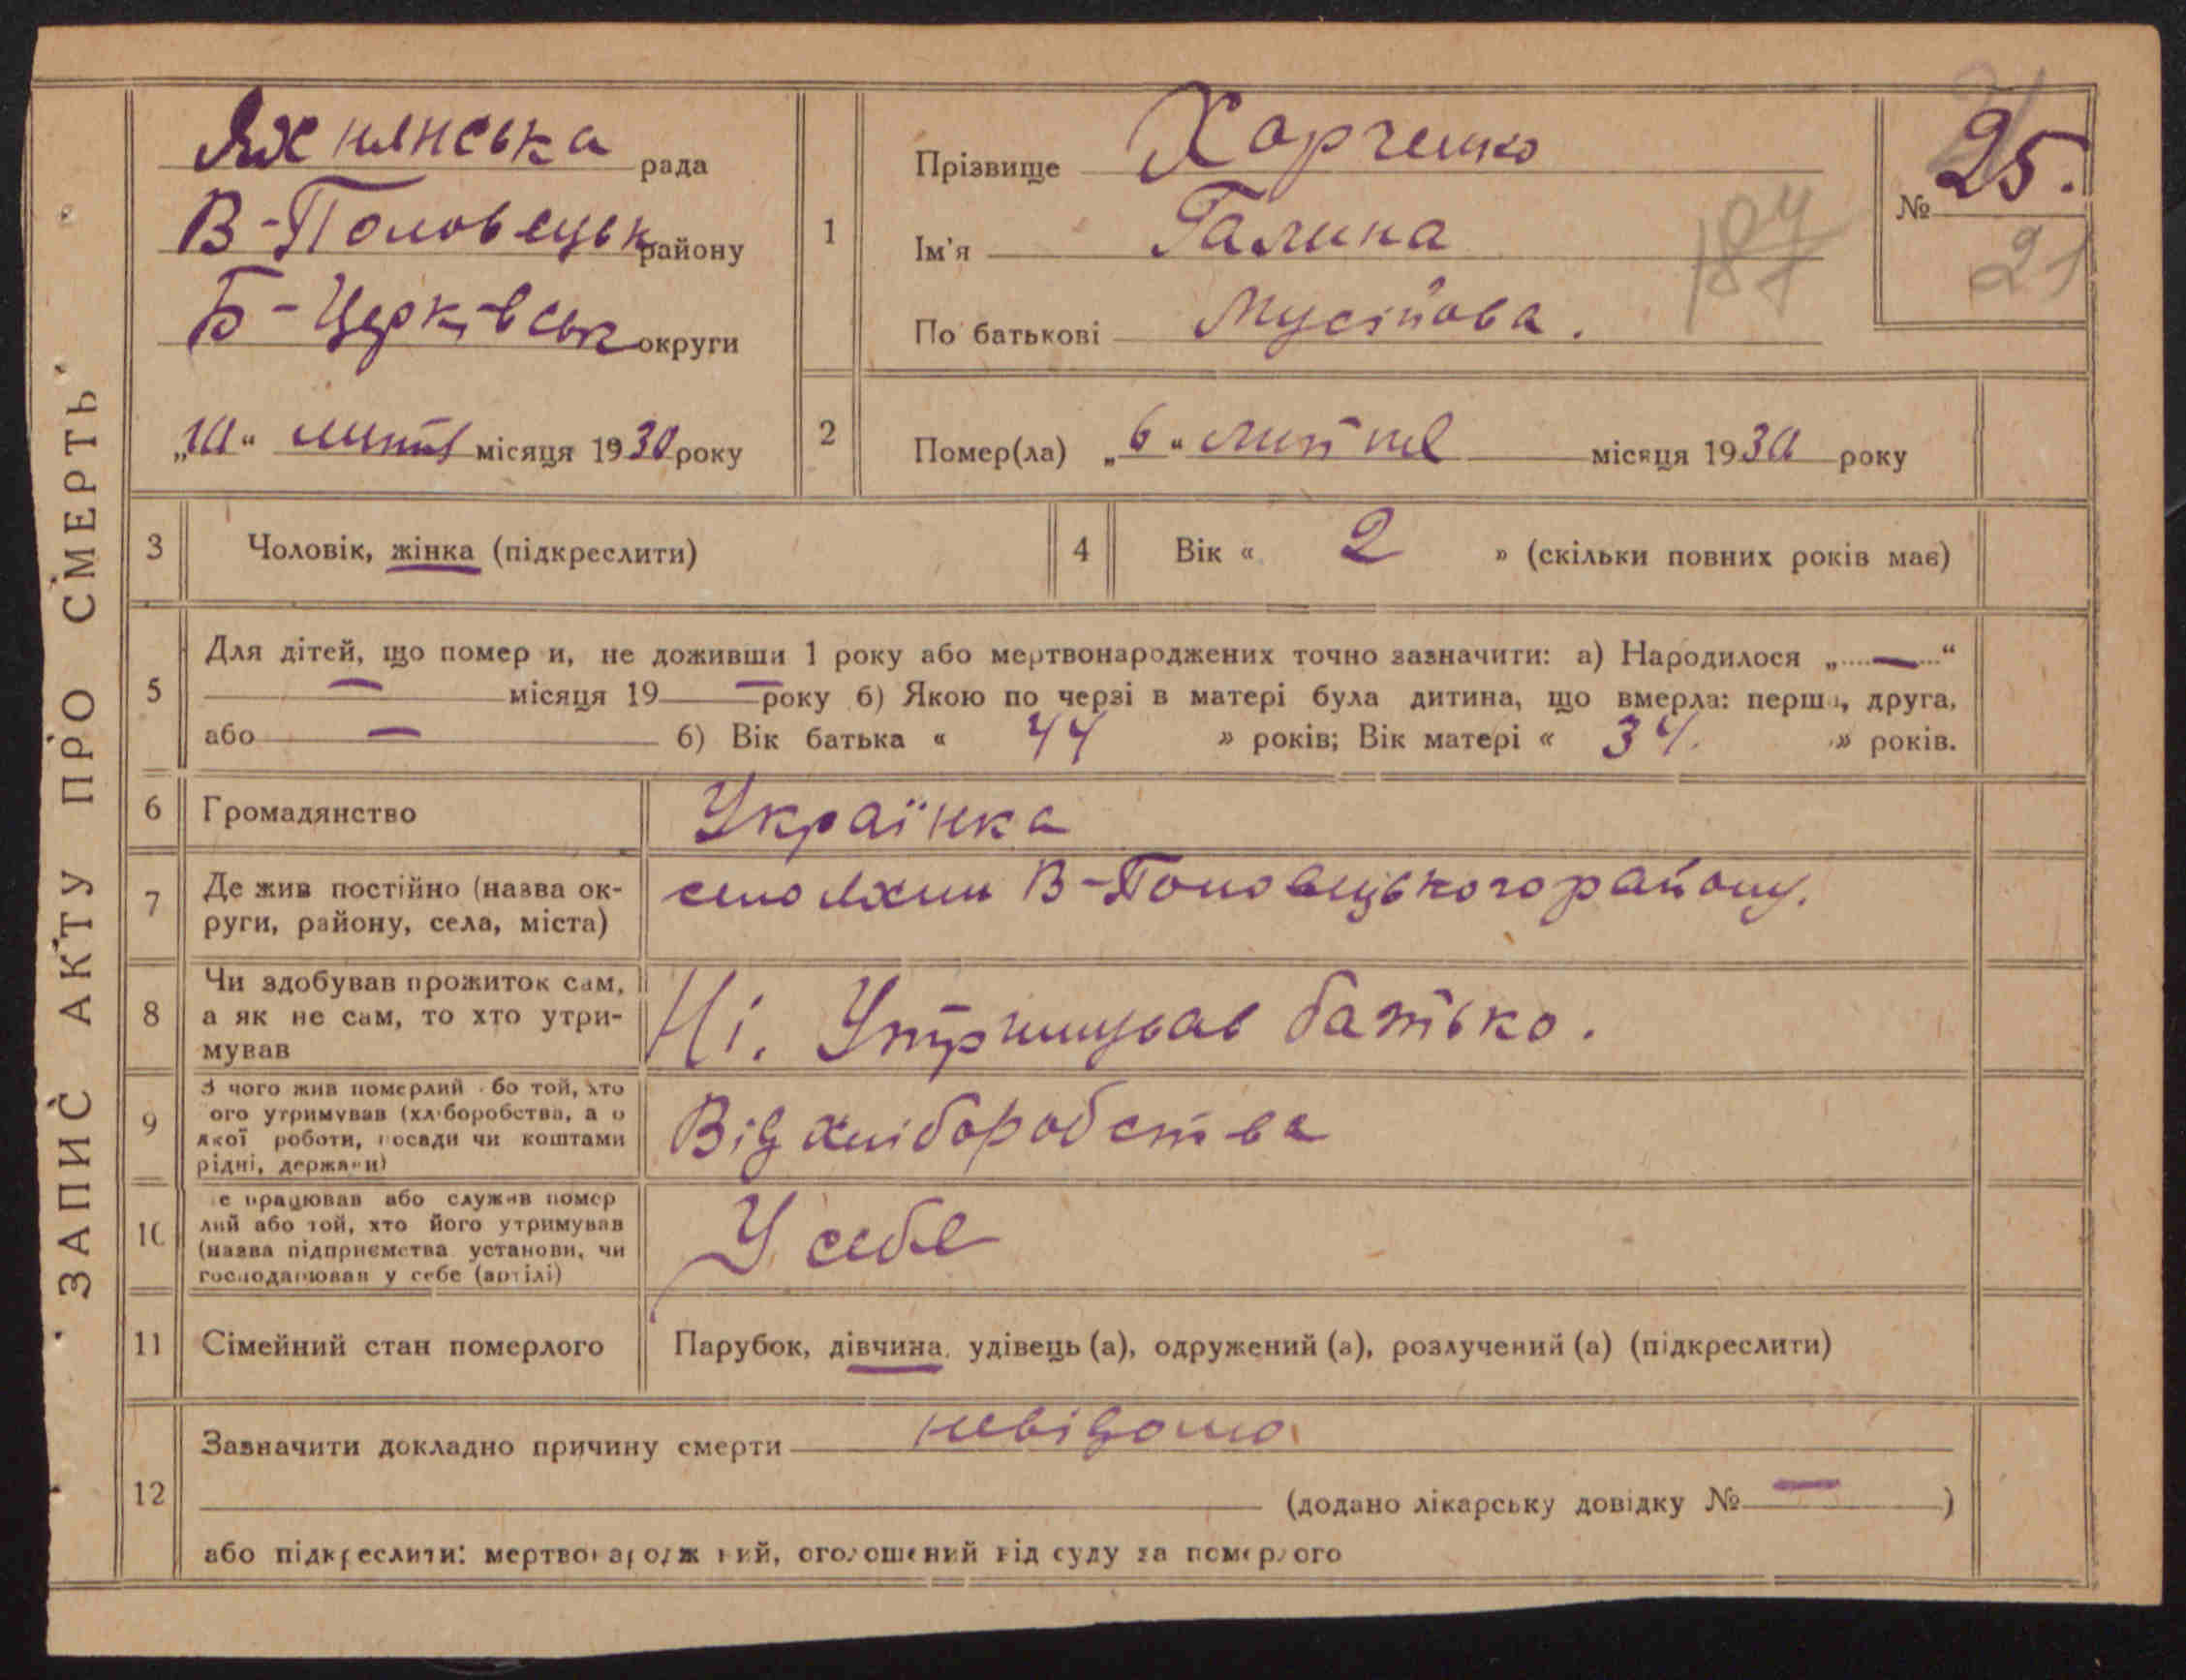 ЗАПИС АКТУ ПРО СМЕРТЬ
Яхнянська рада
В-Половецьк району
Б-Церківськ округи
„10“ липня місяця 1930 року
1
Прізвище Харченко
Ім'я Галина
По батькові Мусіївова.
№ 25.
21
2
Помер(ла) „6“ липня місяця 1930 року
3
Чоловік, жінка (підкреслити)
4
Вік « 2 » (скільки повних років має)
5
Для дітей, що помер и, не доживши 1 року або мертвонароджених точно зазначити: а) Народилося „ — “
— місяця 19 — року б) Якою по черзі в матері була дитина, що вмерла: перша, друга,
або — б) Вік батька « 44 » років; Вік матері « 34. » років.
6
Громадянство
Українка
7
Де жив постійно (назва ок-
руги, району, села, міста)
село Яхни В-Половецького району.
8
Чи здобував прожиток сам,
а як не сам, то хто утри-
мував
Ні. Утримував батько.
9
З чого жив померлий або той, хто
ого утримував (хліборобства, а о
якої роботи, посади чи коштами
рідні, держави)
Від хліборобства
10
е працював або служив помер
лий або той, хто його утримував
(назва підприємства установи, чи
господарював у себе (артілі)
У себе
11
Сімейний стан померлого
Парубок, дівчина, удівець (а), одружений (а), розлучений (а) (підкреслити)
12
Зазначити докладно причину смерти невідомо
(додано лікарську довідку № — )
або підкреслити: мертвонароджений, оголошений від суду за померлого